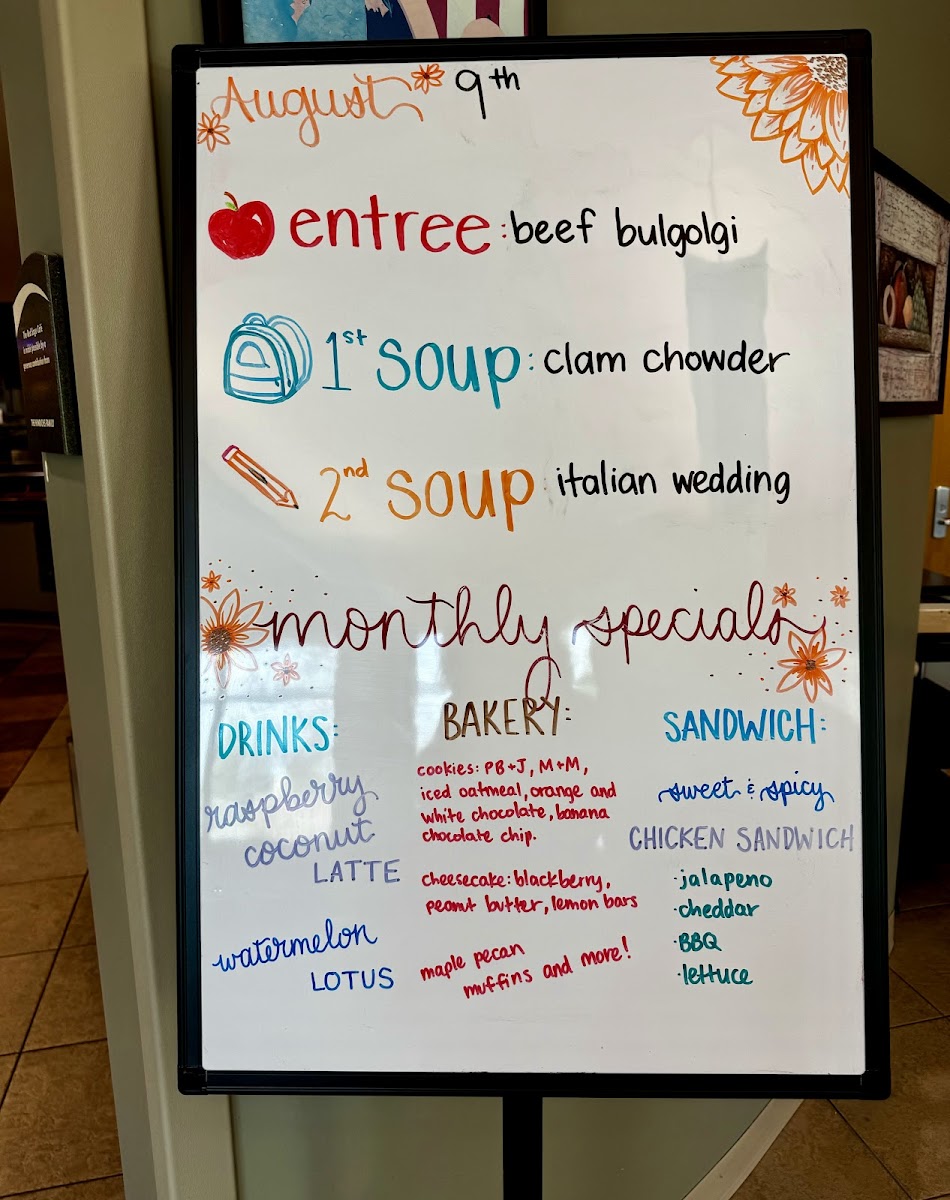 August 9th
entree: beef bulgolgi
1st soup: clam chowder
2nd soup italian wedding
monthly specials
DRINKS:
raspberry
coconut
LATTE
watermelon
LOTUS
BAKERY:
cookies: PB+J, M+M,
iced oatmeal, orange and
white chocolate, banana
chocolate chip.
cheesecake: blackberry,
peanut butter, lemon bars
maple pecan
muffins and more!
SANDWICH:
sweet & spicy
CHICKEN SANDWICH
·jalapeno
·cheddar
·BBQ
·lettuce